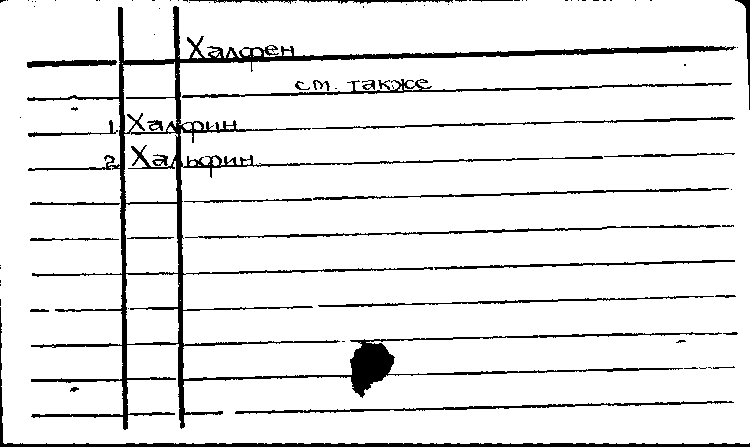 Халфен
см. также
1. Халфин
2. Хальфин